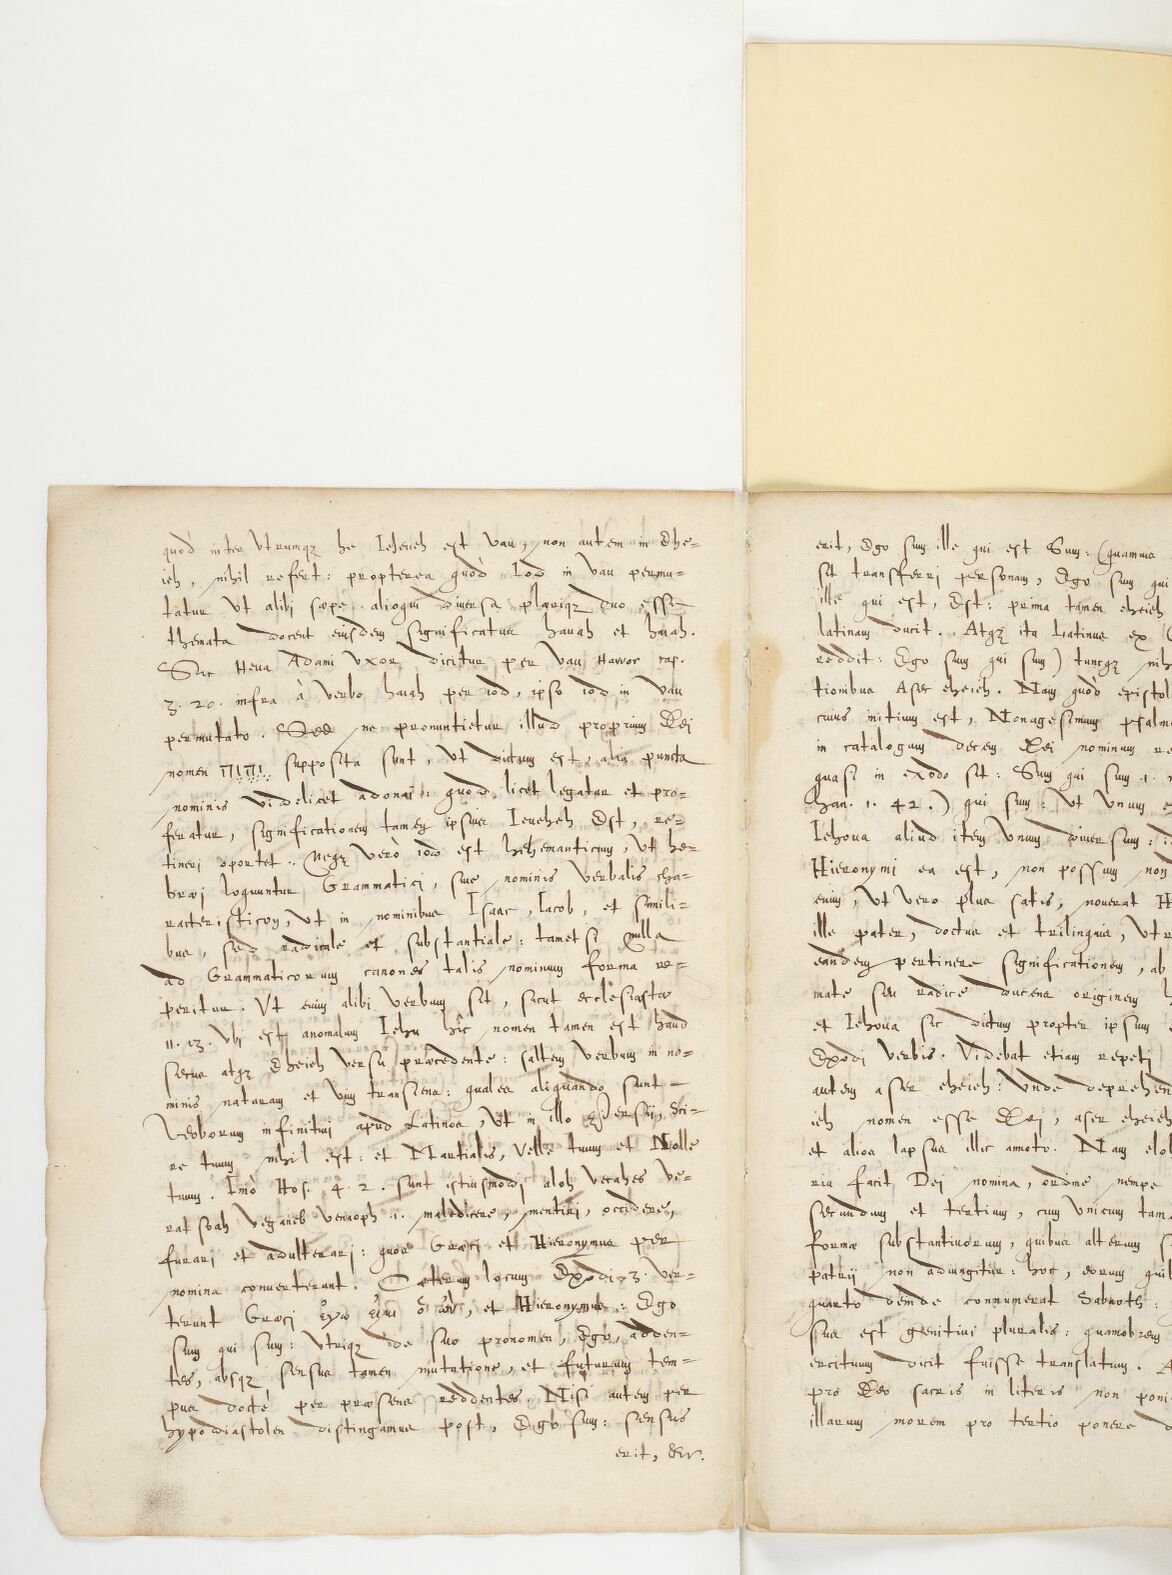 quòd inter vtrumqꝫ he Ieheueh est vau, non autem in Ehe=
ieh, nihil refert: propterea quòd Iod in vau permu=
tatur vt alibi sæpe. alioqui diuersa plæriqꝫ duo esse
themata docent eiusdem significatus hauah et haiah.
Sic Heua Adami vxor dicitur per vau Hawoc cap.
3. 20. infra à verbo haiah per iod, ipso iod in vau
permutato. Sed ne pronuntietur illud proprium Dei
nomen יהוה supposita sunt, vt dictum est, alia puncta
nominis videlicet adonai: quod licet legatur et pro=
feratur, significationem tamen ipsius Ieueheh Est, re=
tineri oportet. Neqꝫ verò iod est hehemanticum, vt he=
bræi loquuntur Grammatici, siue nominis verbalis cha=
racteristicon, vt in nominibus Isaac, Iacob, et simili=
bus, sed radicale et substantiale: tametsi nulla
ad Grammaticorum canones talis nominum forma re=
peritur. Vt enim alibi verbum sit, sicut ecclesiastæ
11. 13. vbi est anomalum Iehu hîc nomen tamen est haud
secus atqꝫ Eheieh versu præcedente: saltem verbum in no=
minis naturam et vim transiens: quales aliquando sunt
Verborum infinitiui apud Latinos, vt in illo Persij, Sci=
re tuum nihil est: et Martialis, Velle tuum et Nolle
tuum. Imò Hos. 4. 2. sunt istiusmodi aloh vecahes ve=
ratsoah veganeb venaoph .i. maledicere, mentiri, occidere,
furari et adulterari: quæ Græci et Hieronymus per
nomina conuerterunt. Cæterum locum Exodi, 3. ver=
terunt Græci ἐγω εἰμι ὁ ὢν, et Hieronymus: Ego
sum qui sum: vtriqꝫ de suo pronomen, Ego, adden=
tes, absqꝫ sensus tamen mutatione, et futurum tem=
pus doctè per præsens reddentes. Nisi autem per
hypodiastolen distingamus post, Ego sum: sensus
erit, &c.
erit, Ego sum ille qui est Sum: (quamuis
sit transferri personam, Ego sum qui
ille qui est, Est: prima tamen eheieh
latinam ducit. Atqꝫ ita Latinus ex
reddit: Ego sum qui sum) tuncqꝫ nih
tionibus Aser eheieh. Nam quòd epistol
cuius initium est, Nonagesimum psalm
in catalogum decem Dei nominum re
quasi in exodo sit: Sum qui sum .1.
han. 1. 42.) qui sum: vt vnum e
Iehoua aliud item vnum diuersum:
Hieronymi ea est, non possum non
enim, vt vero plus satis, nouerat H
ille pater, doctus et trilinguis, vtr
eandem pertinere significationem, ab
mate seu radice ducens originem h
et Iehoua sic dictum propter ipsum
Exodi verbis. Videbat etiam repeti
autem aser eheieh: Vnde deprehen
ieh nomen esse Dei, aser eheieh
et alios lapsus illic annoto. Nam eloh
ria facit Dei nomina, ordine nempe
secundum et tertium, cum vnicum tam
formæ substantiuorum, quibus alterum
patrij non adiungitur: hoc, eorum qui
quarto deinde connumerat Sabaoth:
sus est genitiui pluralis: quamobrem
ercituum dicit fuisse translatum. A
pro Deo sacris in literis non poni
illarum morem pro tertio ponere d